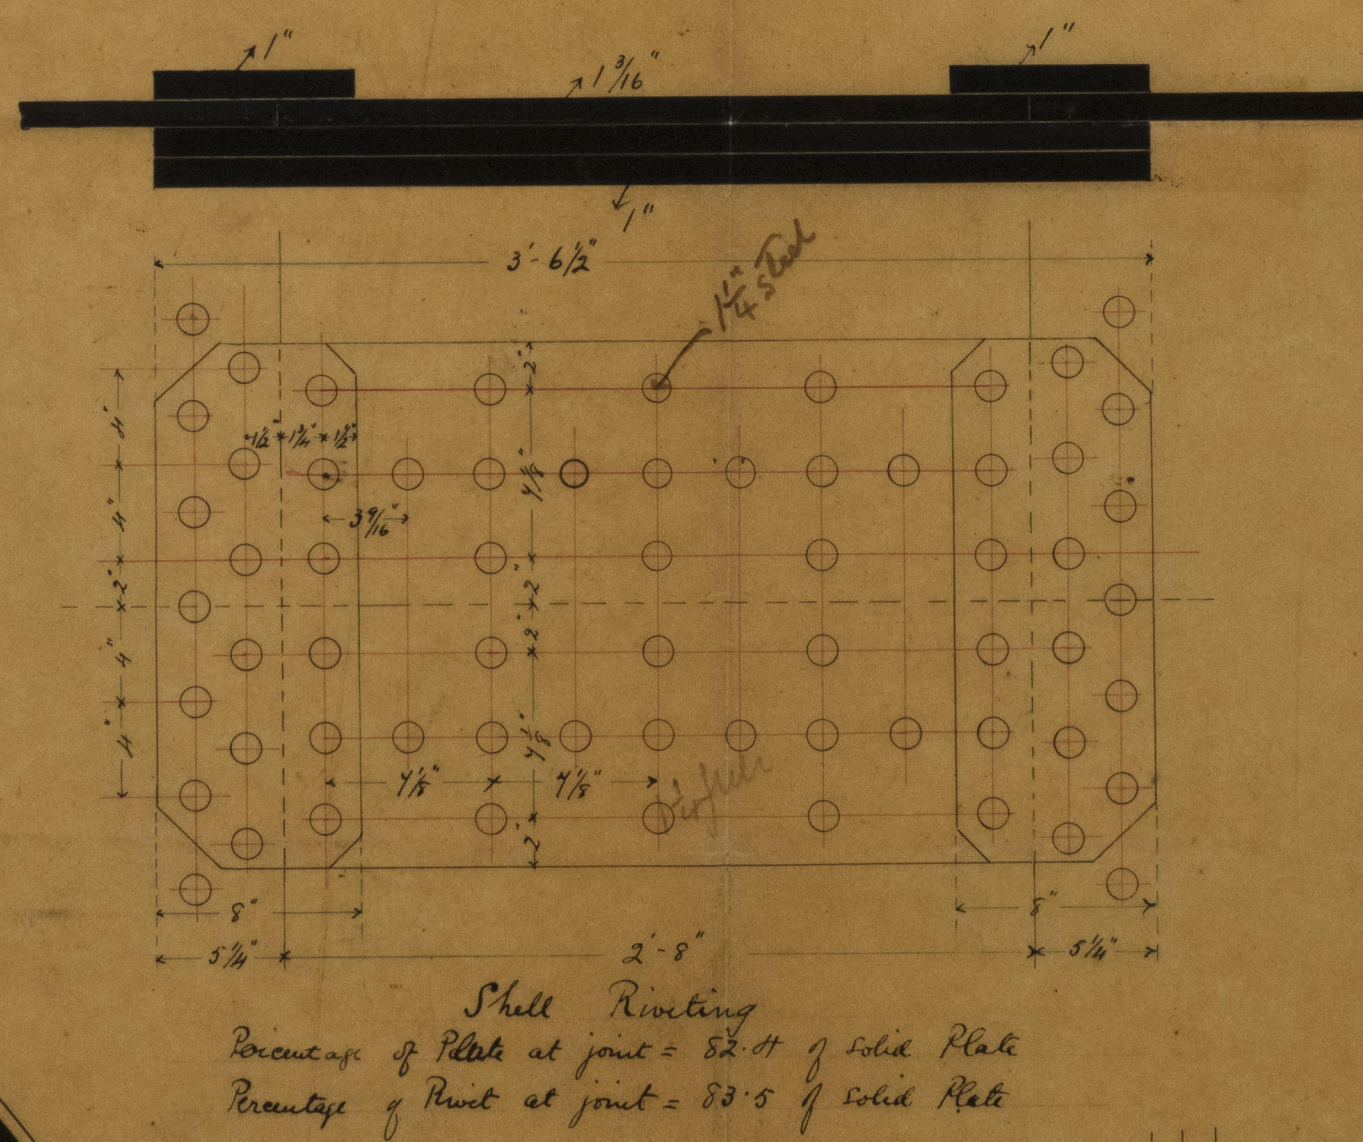 1"
1"
1 3/16"
1"
3'- 6 1/2"
1 1/4" Steel
2"
4"
1 1/2" 1 3/4" 1 1/2"
4 1/8"
3 9/16"
4"
2"
2"
2"
4"
4"
4 1/8"
4 1/8" 4 1/8"
2"
8" 8"
5 1/4" 2'-8" 5 1/4"
Shell Riveting
Percentage of Plate at joint = 82.4 of solid Plate
Percentage of Rivet at joint = 83.5 of solid Plate